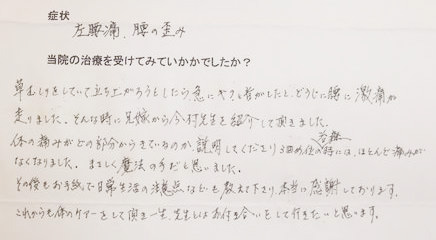 症状
左腰痛、腰の歪み
当院の治療を受けてみていかがでしたか?
草むしりをしていて立ち上がろうとしたら急にギクッと音がしたと同時に腰に激痛が
走りました。そんな時に兄嫁から今村先生を紹介して頂きました。
体の痛みがどの部分からきているのか、説明してくださり3回め位の治療時には、ほとんど痛みが
なくなりました。まさしく魔法の手だと思いました。
その後もお手紙で日常生活の注意点なども教えて下さり、本当に感謝しております。
これからも体のケアーをして頂き一生、先生とはお付き合いをして行きたいと思います。